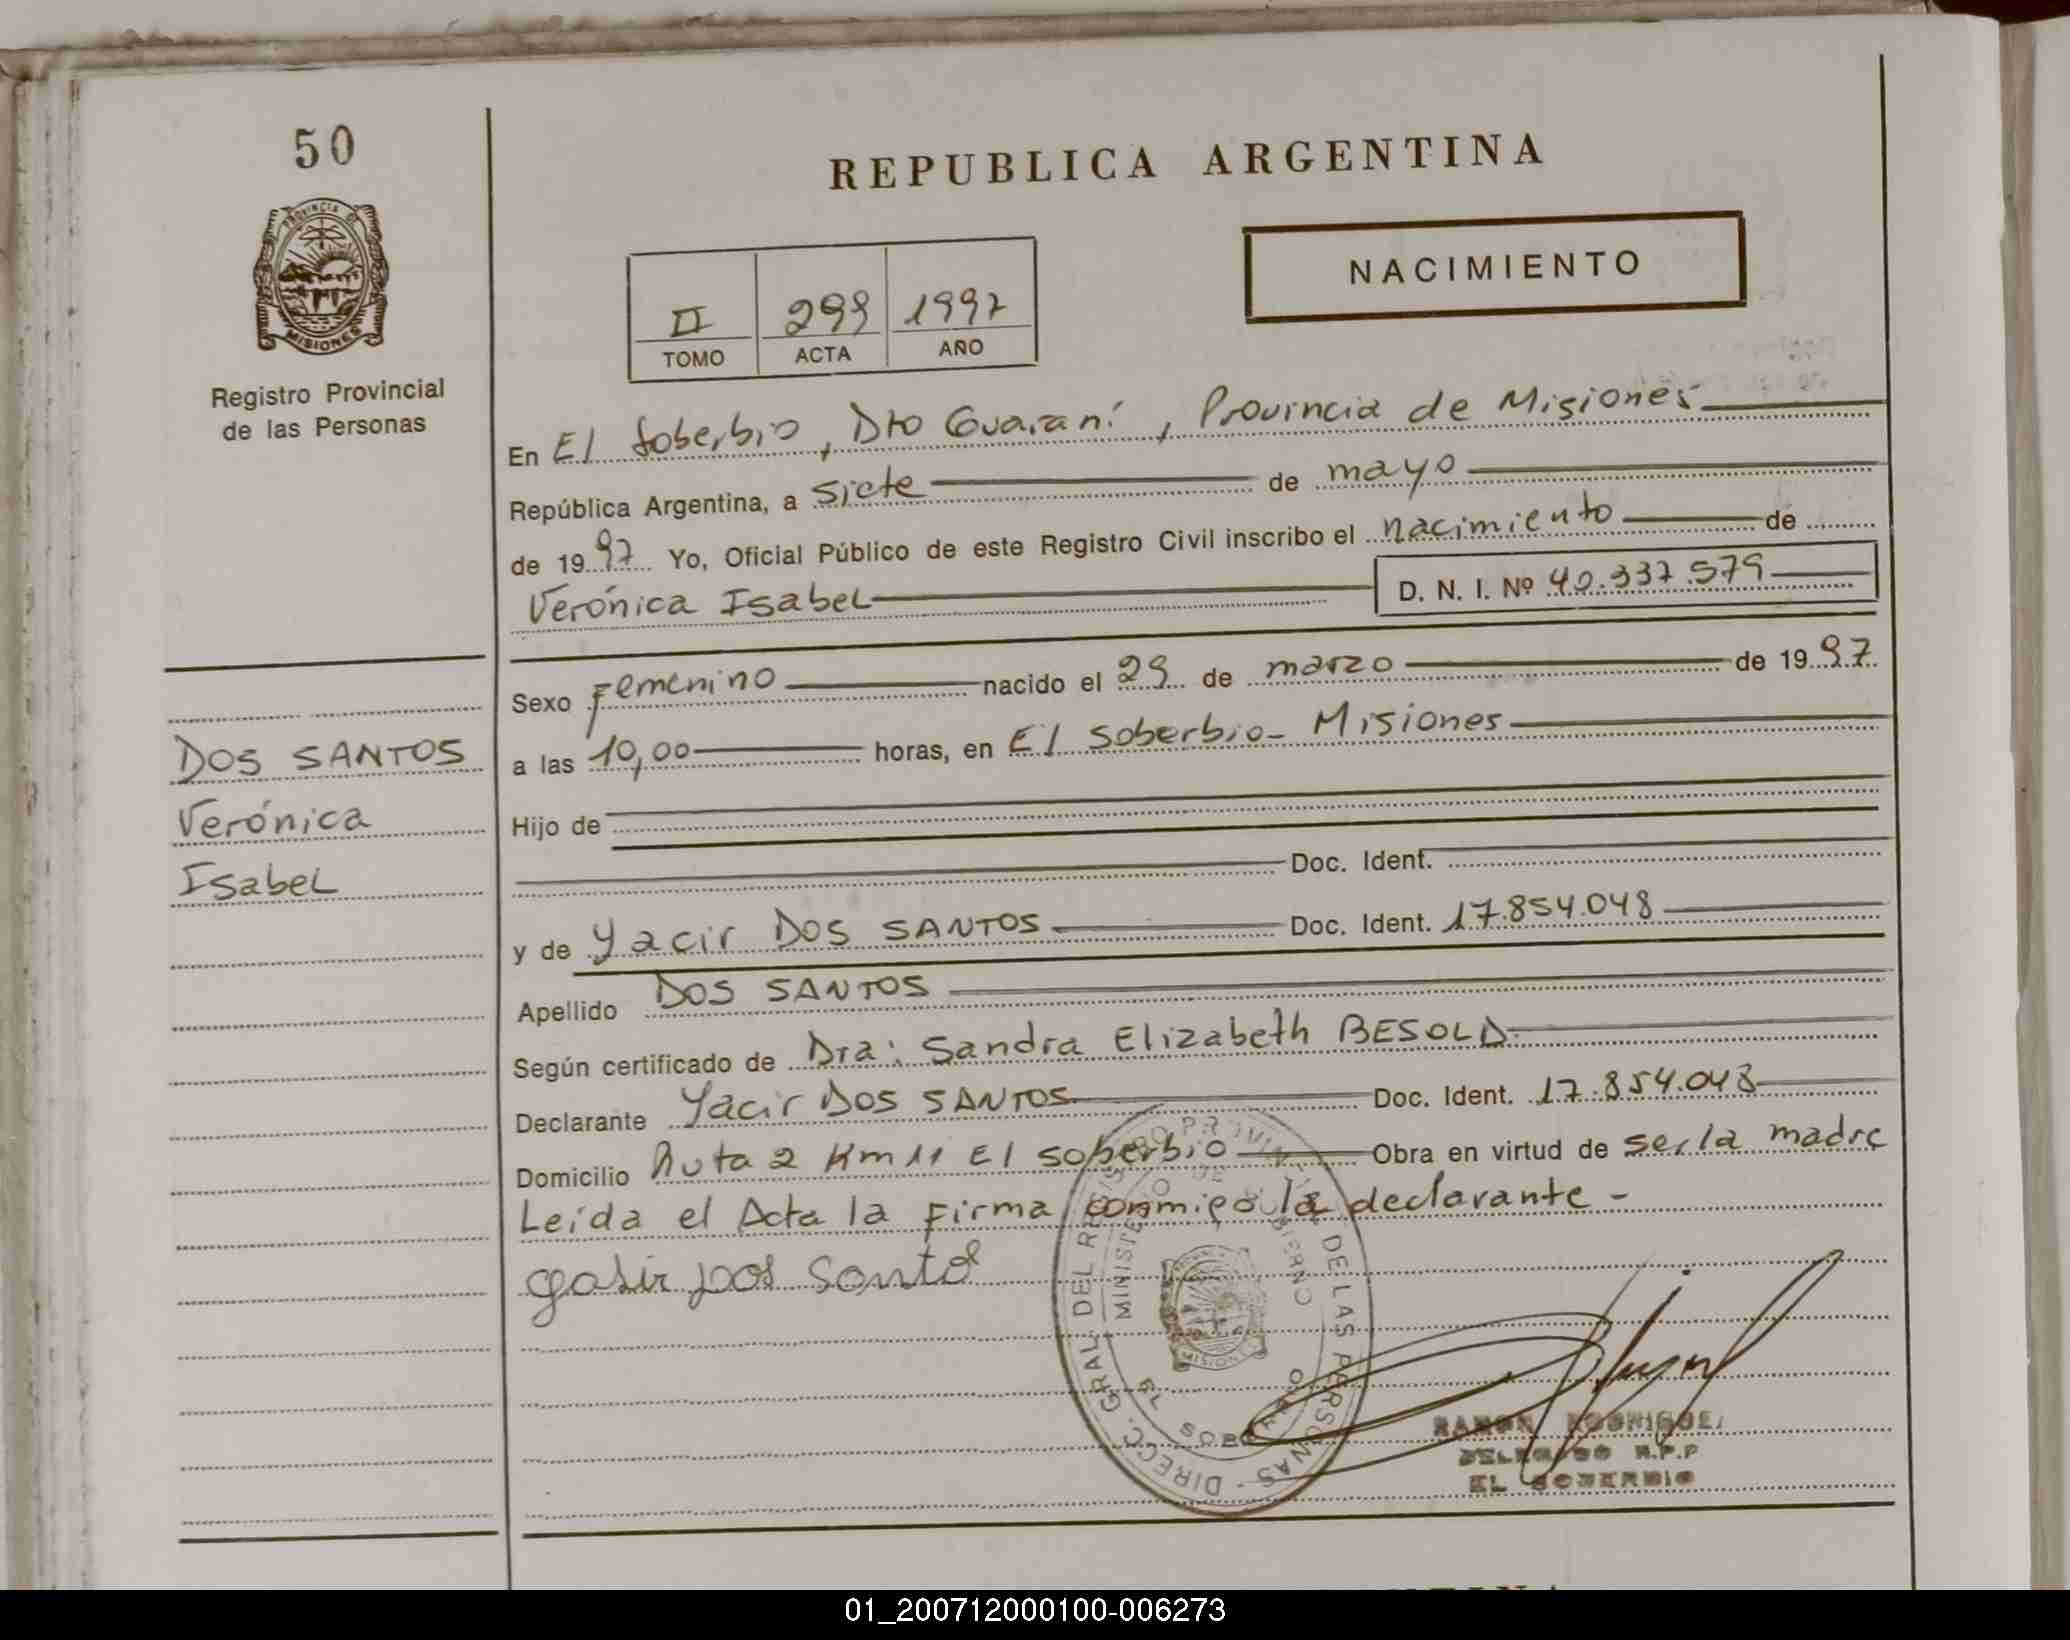 50
PROVINCIA DE
MISIONES
Registro Provincial
de las Personas
REPUBLICA ARGENTINA
NACIMIENTO
II 299 1997
TOMO ACTA AÑO
En El Soberbio, Dto Guaraní, Provincia de Misiones
República Argentina, a siete de mayo
de 1997 Yo, Oficial Público de este Registro Civil inscribo el nacimiento de
Verónica Isabel D. N. I. Nº 40.337.579
Sexo Femenino nacido el 29 de marzo de 1997
a las 10,00 horas, en El Soberbio- Misiones
Hijo de
Doc. Ident.
y de Yacir DOS SANTOS Doc. Ident. 17.854.048
Apellido DOS SANTOS
Según certificado de Dra: Sandra Elizabeth BESOLD
Declarante Yacir DOS SANTOS Doc. Ident. 17.854.048
Domicilio Ruta 2 Km 11 El Soberbio Obra en virtud de ser la madre
Leída el Acta la Firma conmigo la declarante -
DOS SANTOS
Verónica
Isabel
DIRECC. GRAL. DEL REGISTRO PROVINCIAL DE LAS PERSONAS
MINISTERIO DE GOBIERNO
EL SOBERBIO
MISIONES
RAMON RODRIGUEZ
DELEGADO R.P.P
EL SOBERBIO
01_200712000100-006273